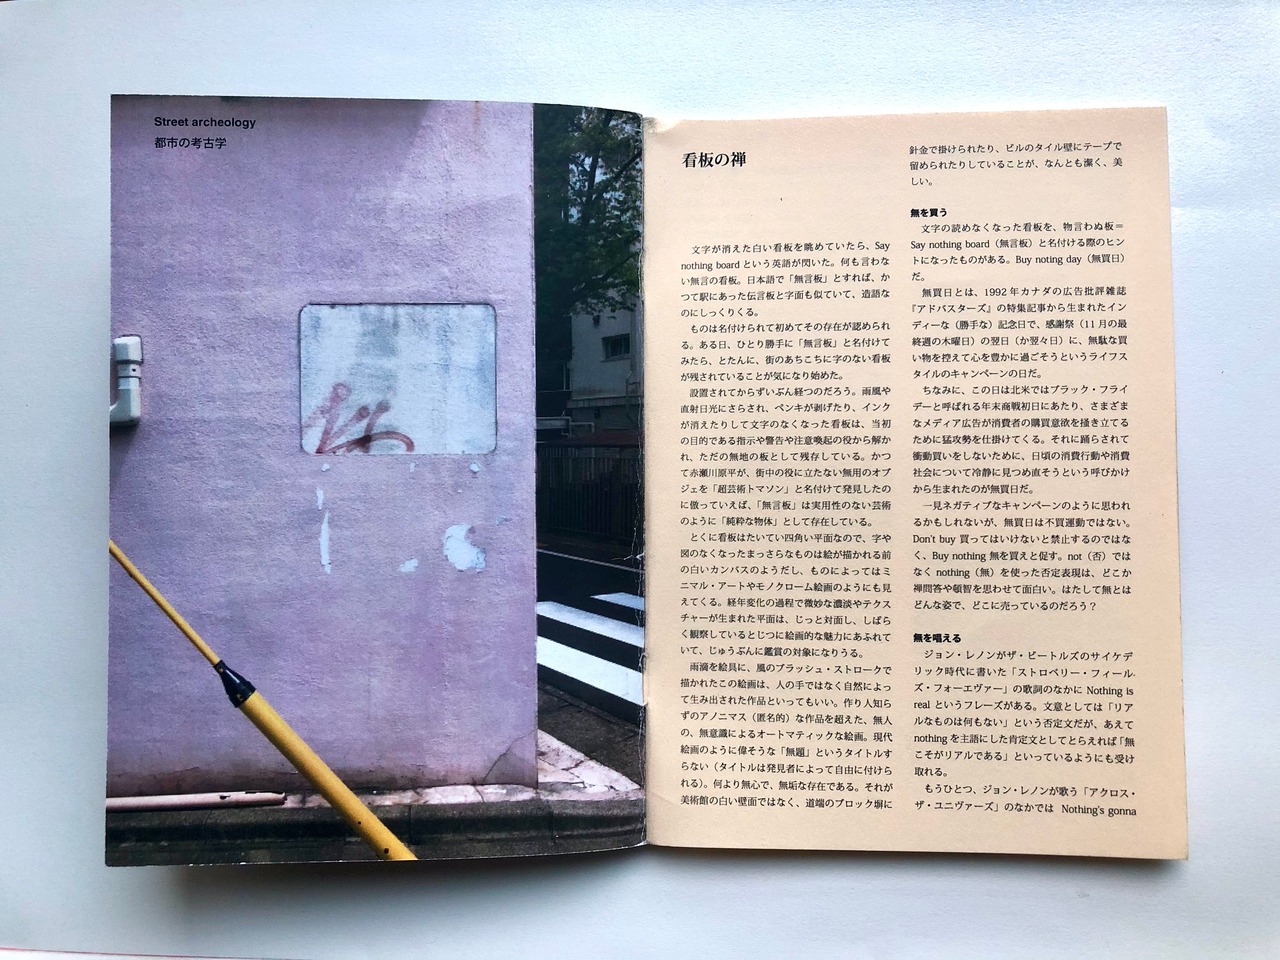 Street archeology
都市の考古学
看板の禅
文字が消えた白い看板を眺めていたら、Say
nothing board という英語が閃いた。何も言わな
い無言の看板。日本語で「無言板」とすれば、か
つて駅にあった伝言板と字面も似ていて、造語な
のにしっくりくる。
ものは名付けられて初めてその存在が認められ
る。ある日、ひとり勝手に「無言板」と名付けて
みたら、とたんに、街のあちこちに字のない看板
が残されていることが気になり始めた。
設置されてからずいぶん経つのだろう。雨風や
直射日光にさらされ、ペンキが剥げたり、インク
が消えたりして文字のなくなった看板は、当初
の目的である指示や警告や注意喚起の役から解か
れ、ただの無地の板として残存している。かつ
て赤瀬川原平が、街中の役に立たない無用のオブ
ジェを「超芸術トマソン」と名付けて発見したの
に倣っていえば、「無言板」は実用性のない芸術
のように「純粋な物体」として存在している。
とくに看板はたいてい四角い平面なので、字や
図のなくなったまっさらなものは絵が描かれる前
の白いカンバスのようだし、ものによってはミ
ニマル・アートやモノクローム絵画のようにも見
えてくる。経年変化の過程で微妙な濃淡やテクス
チャーが生まれた平面は、じっと対面し、しばら
く観察しているとじつに絵画的な魅力にあふれて
いて、じゅうぶんに鑑賞の対象になりうる。
雨滴を絵具に、風のブラッシュ・ストロークで
描かれたこの絵画は、人の手ではなく自然によっ
て生み出された作品といってもいい。作り人知ら
ずのアノニマス（匿名的）な作品を超えた、無人
の、無意識によるオートマティックな絵画。現代
絵画のように偉そうな「無題」というタイトルす
らない（タイトルは発見者によって自由に付けら
れる）。何より無心で、無垢な存在である。それが
美術館の白い壁面ではなく、道端のブロック塀に
針金で掛けられたり、ビルのタイル壁にテープで
留められたりしていることが、なんとも潔く、美
しい。
無を買う
文字の読めなくなった看板を、物言わぬ板＝
Say nothing board（無言板）と名付ける際のヒン
トになったものがある。Buy noting day（無買日）
だ。
無買日とは、1992 年カナダの広告批評雑誌
『アドバスターズ』の特集記事から生まれたイン
ディーな（勝手な）記念日で、感謝祭（11 月の最
終週の木曜日）の翌日（か翌々日）に、無駄な買
い物を控えて心を豊かに過ごそうというライフス
タイルのキャンペーンの日だ。
ちなみに、この日は北米ではブラック・フライ
デーと呼ばれる年末商戦初日にあたり、さまざま
なメディア広告が消費者の購買意欲を掻き立てる
ために猛攻勢を仕掛けてくる。それに踊らされて
衝動買いをしないために、日頃の消費行動や消費
社会について冷静に見つめ直そうという呼びかけ
から生まれたのが無買日だ。
一見ネガティブなキャンペーンのように思われ
るかもしれないが、無買日は不買運動ではない。
Don't buy 買ってはいけないと禁止するのではな
く、Buy nothing 無を買えと促す。not（否）では
なく nothing（無）を使った否定表現は、どこか
禅問答や頓智を思わせて面白い。はたして無とは
どんな姿で、どこに売っているのだろう？
無を唱える
ジョン・レノンがザ・ビートルズのサイケデ
リック時代に書いた「ストロベリー・フィール
ズ・フォーエヴァー」の歌詞のなかに Nothing is
real というフレーズがある。文意としては「リア
ルなものは何もない」という否定文だが、あえて
nothing を主語にした肯定文としてとらえれば「無
こそがリアルである」といっているようにも受け
取れる。
もうひとつ、ジョン・レノンが歌う「アクロス・
ザ・ユニヴァーズ」のなかでは Nothing's gonna